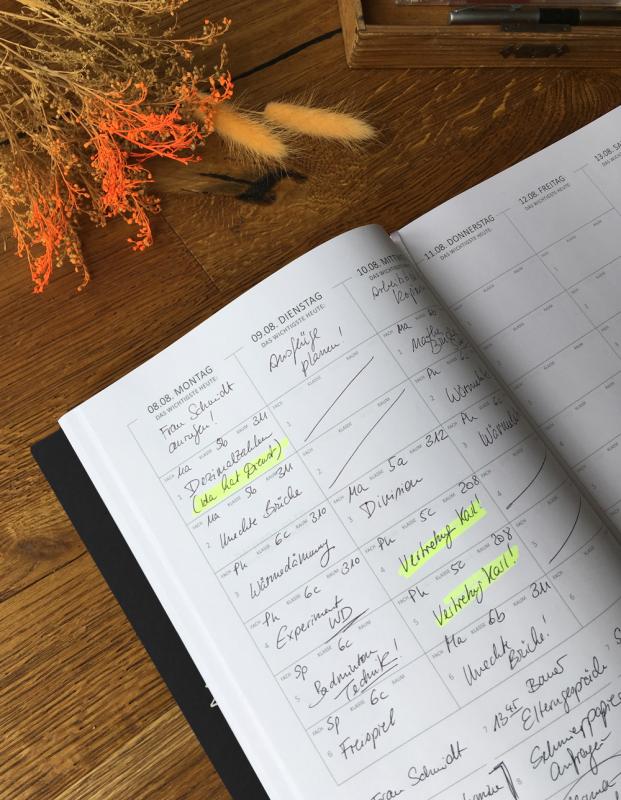 08.08. MONTAG
DAS WICHTIGSTE HEUTE:
Frau Schmidt
anrufen!
FACH Ma KLASSE 5b RAUM 311
1 Dezimalzahlen
hat Dienst)
FACH Ma KLASSE 5b RAUM 311
2 Unechte Brüche
FACH Ph KLASSE 6c RAUM 310
3 Wärmedämmung
FACH Ph KLASSE 6c RAUM 310
4 Experiment
WD
FACH Sp KLASSE 6c RAUM
5 Badminton
Technik!
FACH Sp KLASSE 6c RAUM
6 Freispiel
Frau Schmidt
09.08. DIENSTAG
DAS WICHTIGSTE HEUTE:
Ausflüge
planen!
FACH KLASSE RAUM
1
FACH KLASSE RAUM
2
FACH Ma KLASSE 5a RAUM 312
3 Division
FACH Ph KLASSE 5c RAUM 208
4 Vertretung Karl!
FACH Ph KLASSE 5c RAUM 208
5 Vertretung Karl!
FACH Ma KLASSE 6b RAUM 311
6 Unechte
Brüche!
7 13:45 Bauer
Elterngespräche
8 Schmierpapier
Anfragen
10.08.
DAS WICHTIGSTE
Ma
1
Ph
2
Ph 6c
3
4
5
6
11.08. DONNERSTAG
DAS WICHTIGSTE HEUTE:
FACH KLASSE RAUM
1
2
3
12.08. FREITAG
DAS WICHTIGSTE HEUTE:
FACH KLASSE RAUM
1
2
3
13.08.